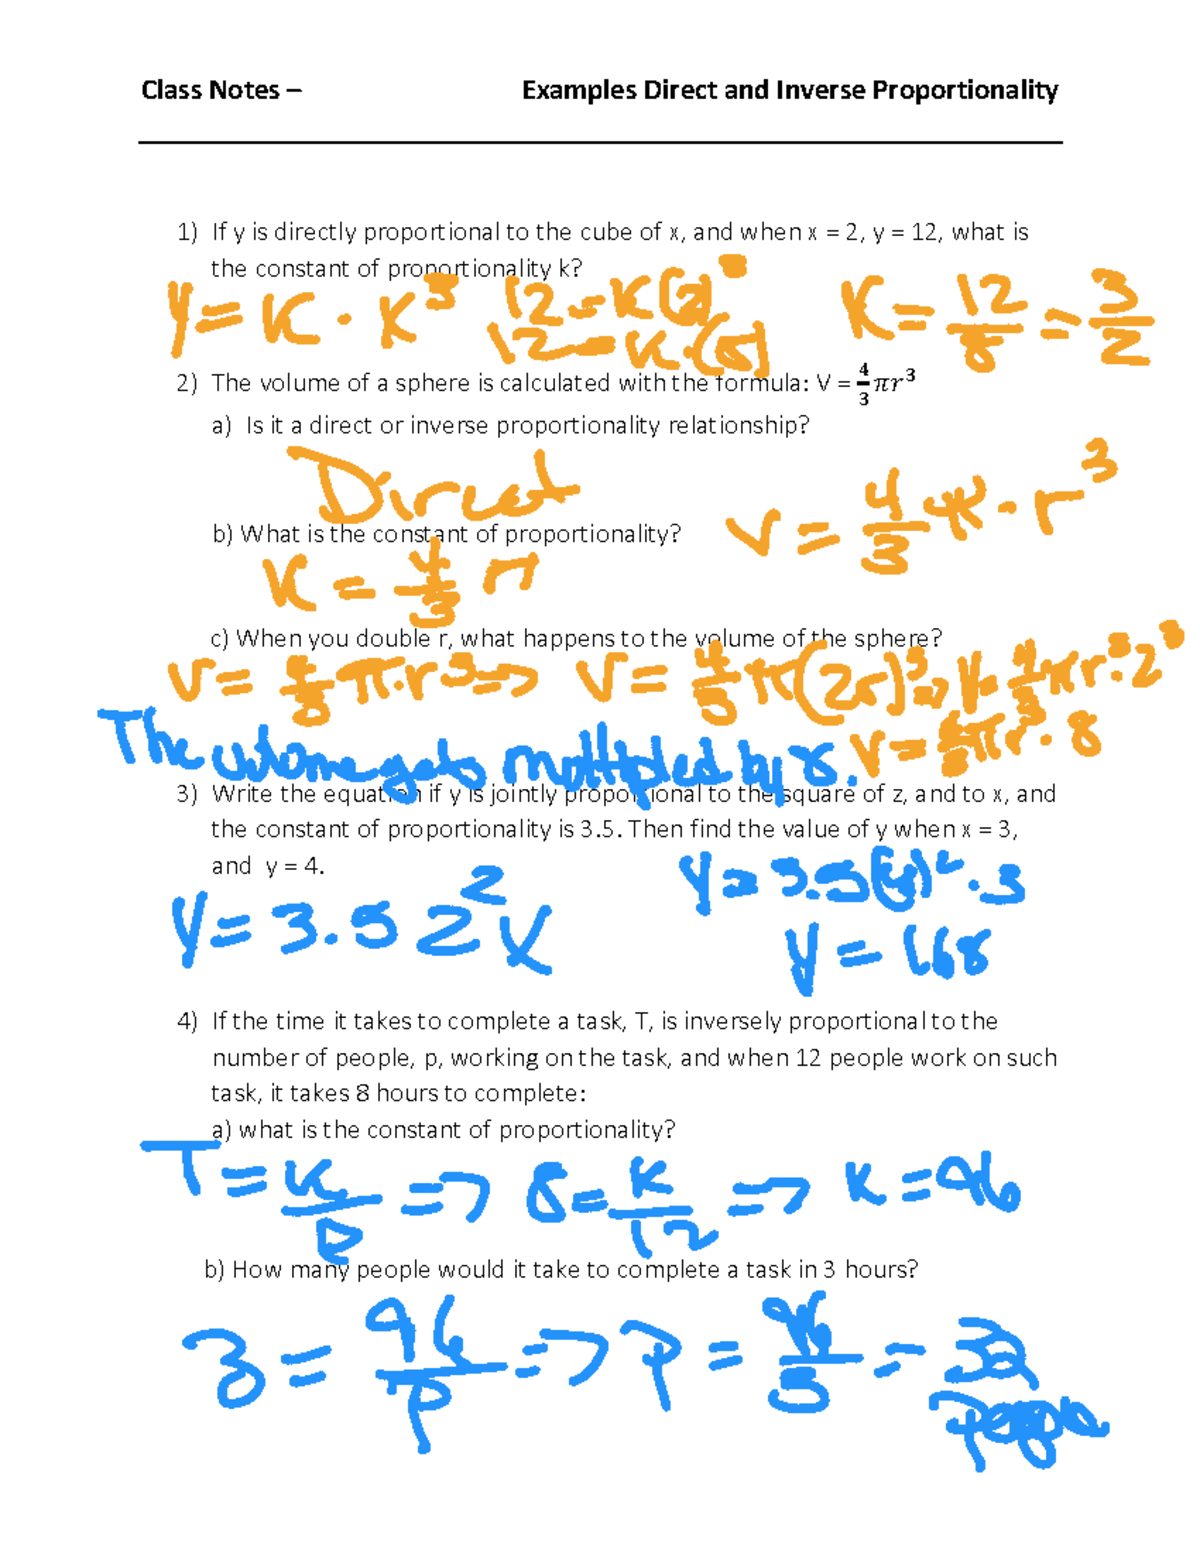 Class Notes – Examples Direct and Inverse Proportionality
1) If y is directly proportional to the cube of x, and when x = 2, y = 12, what is
the constant of proportionality k?
y = K · K³ 12 = K(2)³ K = 12/8 = 3/2
12 = K·(8)
2) The volume of a sphere is calculated with the formula: V = 4/3 πr³
a) Is it a direct or inverse proportionality relationship?
Direct
V = 4/3 π · r³
b) What is the constant of proportionality?
K = 4/3 π
c) When you double r, what happens to the volume of the sphere?
V = 4/3 π·r³ => V = 4/3 π(2r)³ => V = 4/3 πr³·2³
V = 4/3 πr³·8
The volume gets multiplied by 8.
3) Write the equation if y is jointly proportional to the square of z, and to x, and
the constant of proportionality is 3.5. Then find the value of y when x = 3,
and y = 4.
y = 3.5 z² x
y = 3.5(4)²·3
y = 168
4) If the time it takes to complete a task, T, is inversely proportional to the
number of people, p, working on the task, and when 12 people work on such
task, it takes 8 hours to complete:
a) what is the constant of proportionality?
T = K/P => 8 = K/12 => K = 96
b) How many people would it take to complete a task in 3 hours?
3 = 96/P => P = 96/3 = 32
People